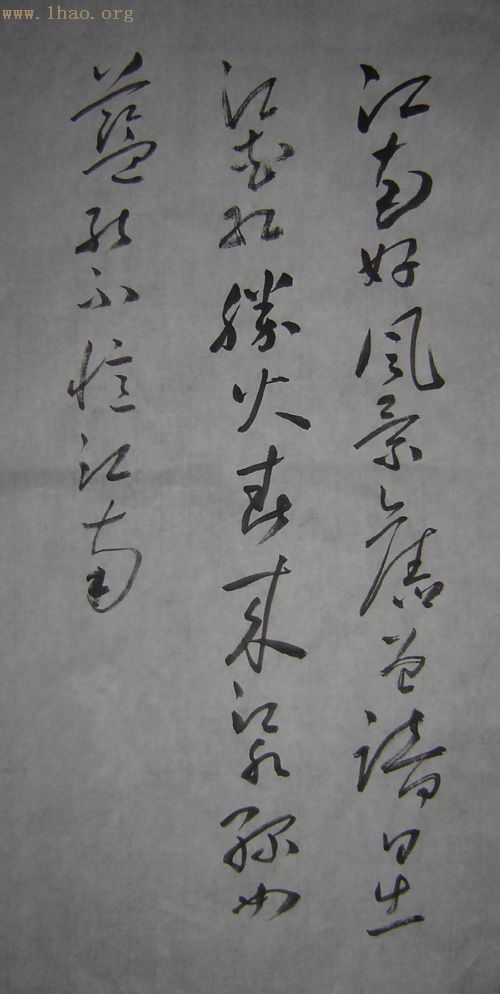 www.1hao.org
江南好風景舊曾諳日出
江花紅勝火春來江水綠如
藍能不憶江南